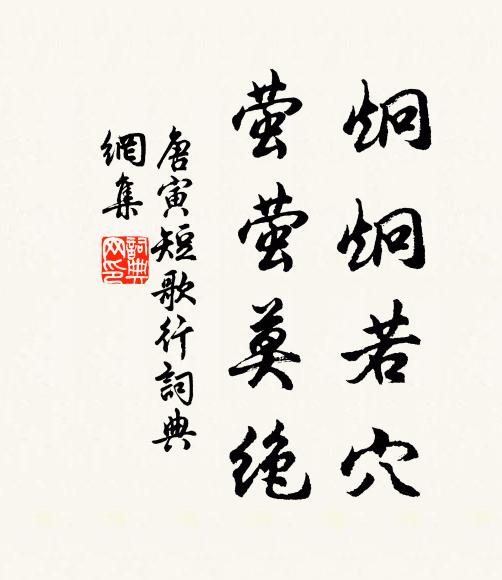 炯炯若穴
萤萤莫绝
唐寅短歌行詞典
網集
詞典网印